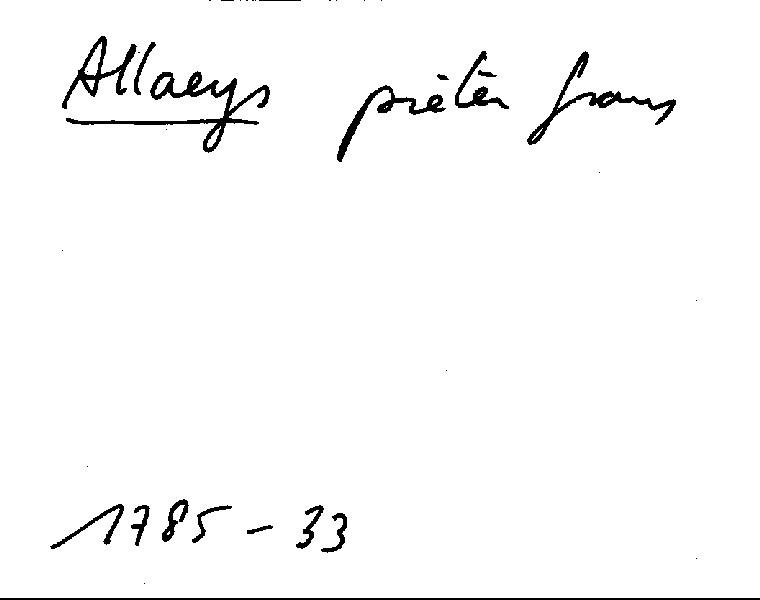 Allaeys pieter frans
1785 - 33